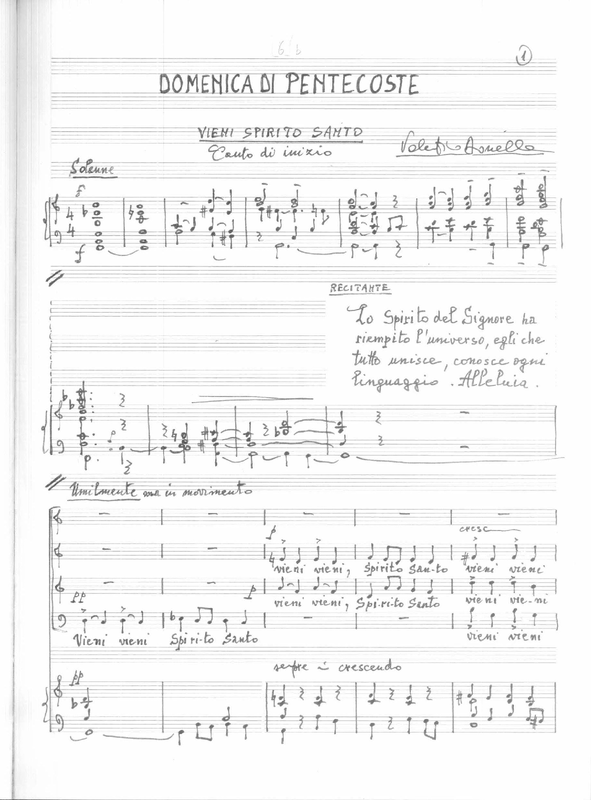 1
DOMENICA DI PENTECOSTE
VIENI SPIRITO SANTO
Canto di inizio
Solenne
f
f
RECITANTE
Lo Spirito del Signore ha
riempito l'universo, egli che
tutto unisce, conosce ogni
linguaggio. Alleluia.
Umilmente ma in movimento
p
cresc
vieni vieni, Spirito San-to vieni vieni
pp
p
vieni vieni, Spi-ri-to Santo vieni vie-ni
Vieni vieni Spiri-to Santo vieni vieni
sempre in crescendo
pp